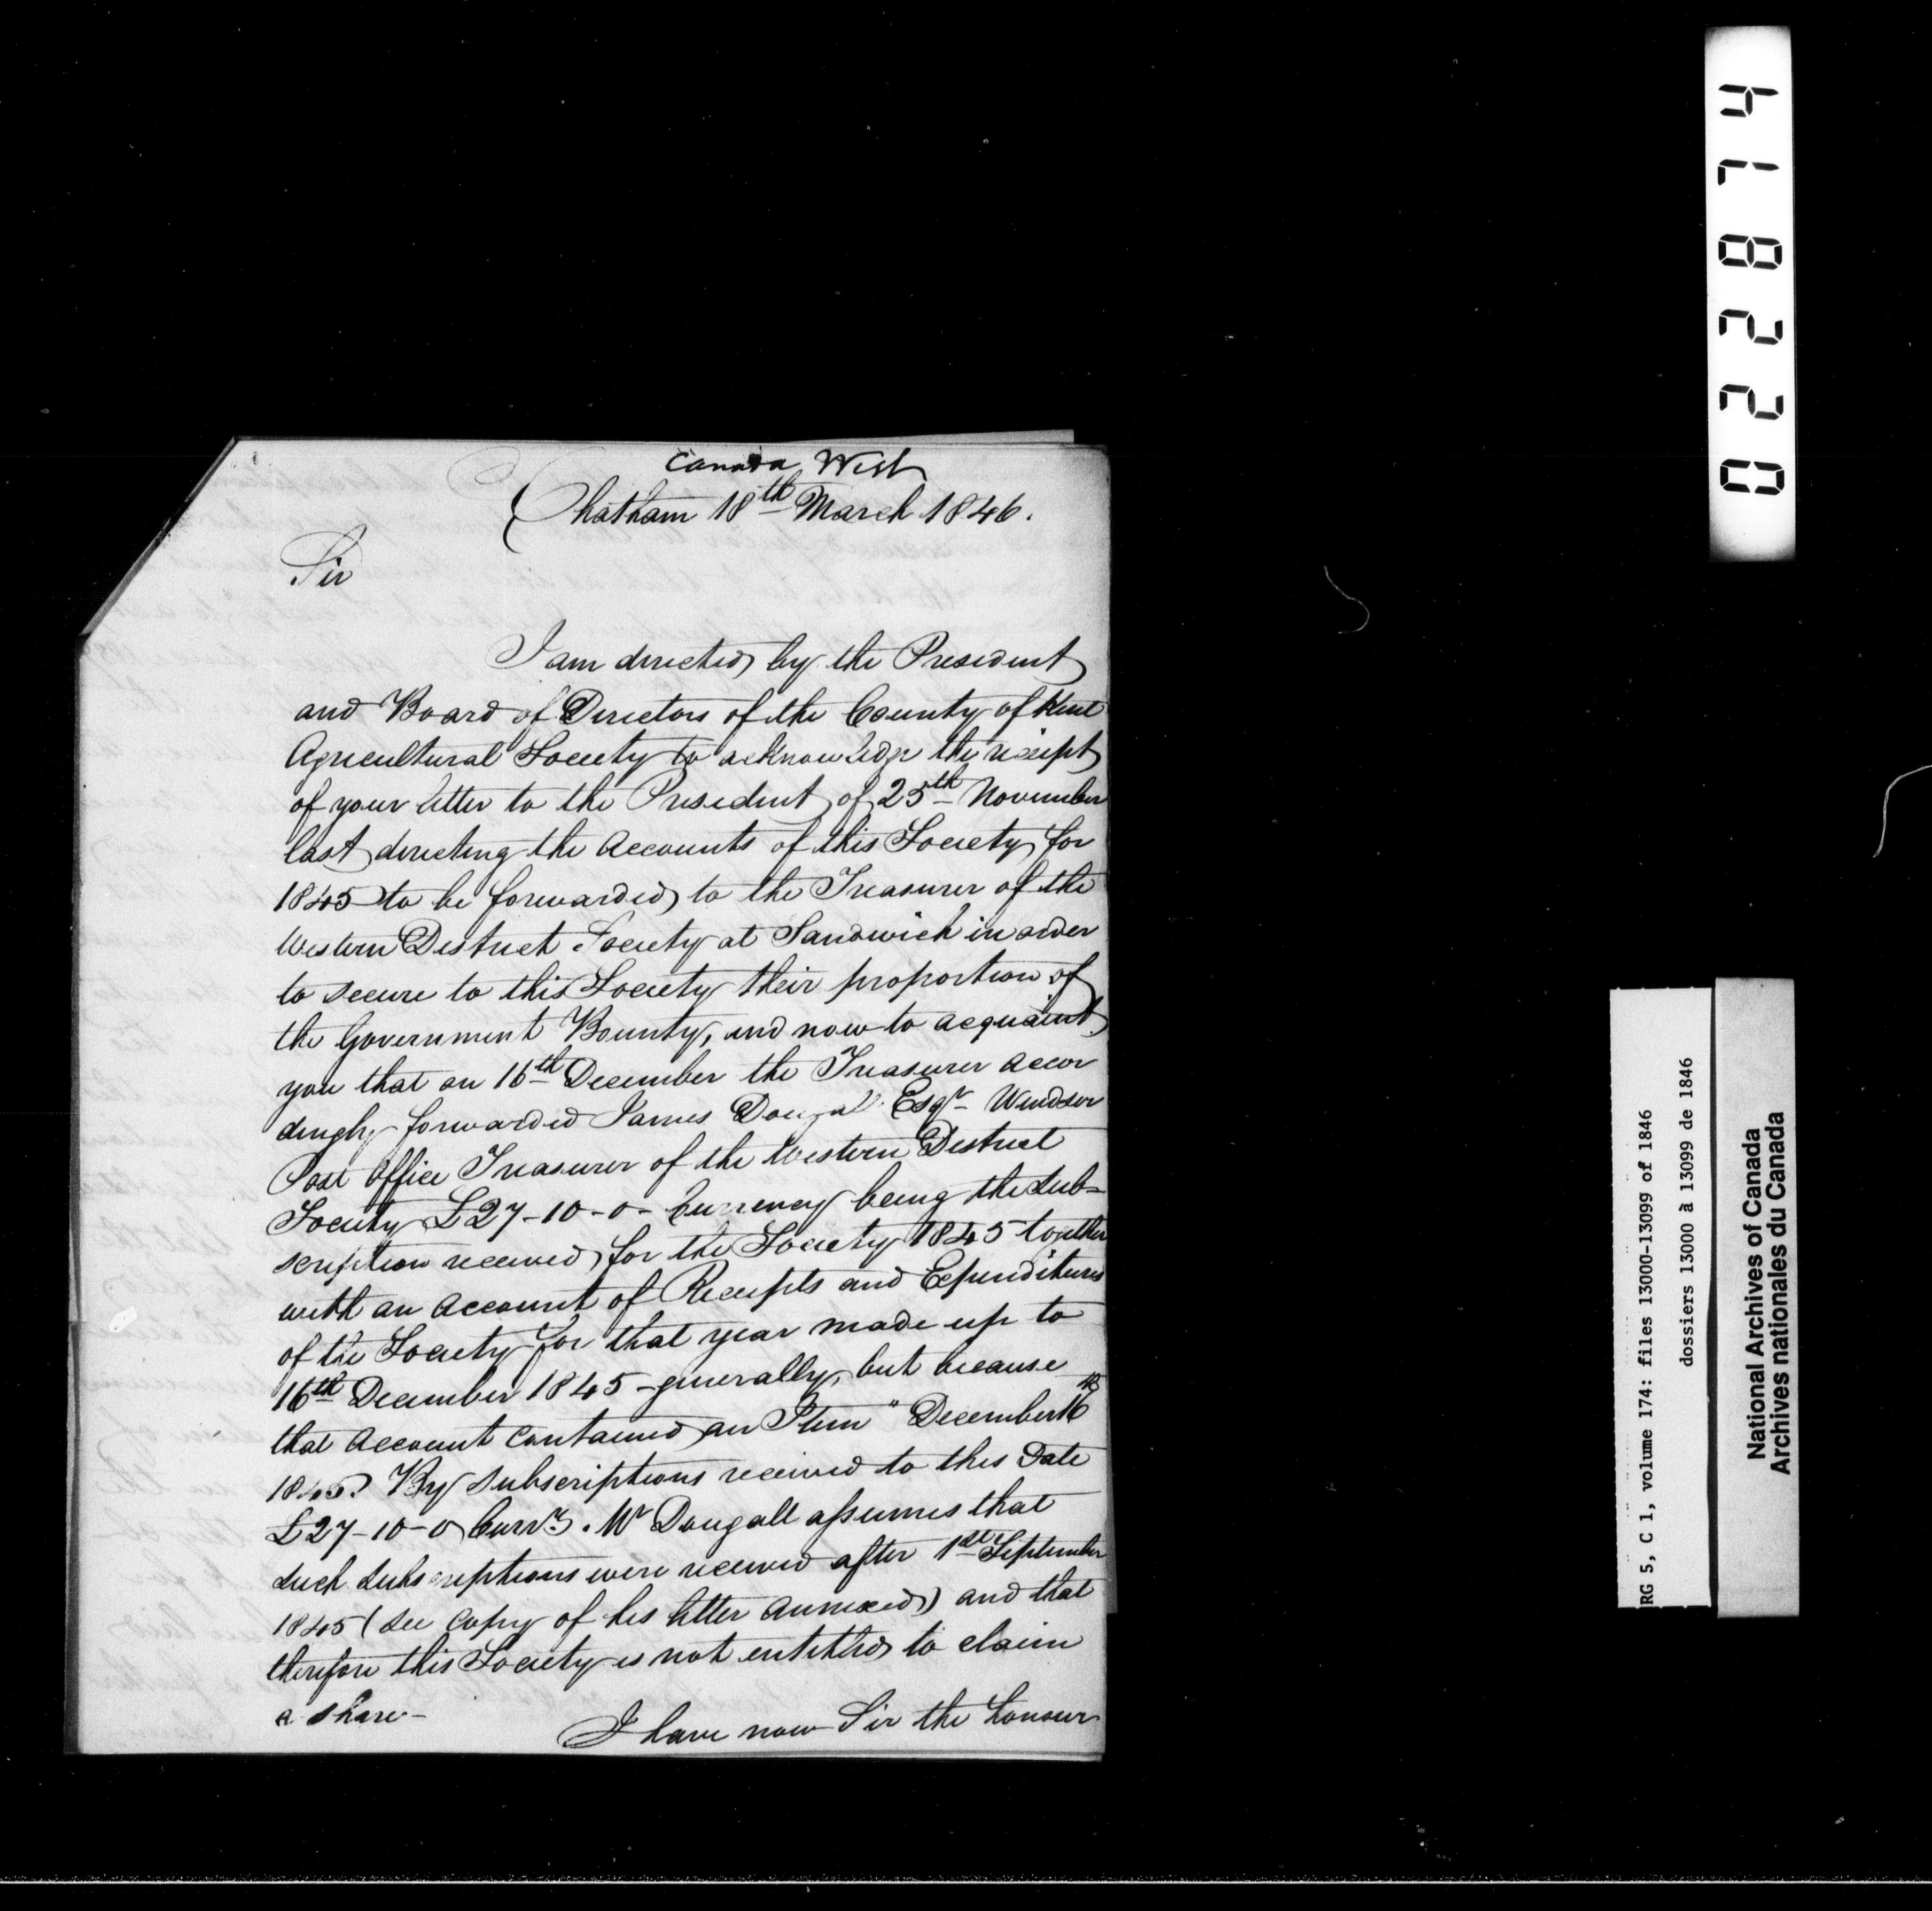 Canada West
Chatham 18th March 1846.
Sir
I am directed by the President
and Board of Directors of the County of Kent
Agricultural Society to acknowledge the receipt
of your letter to the President of 25th November
last directing the Accounts of this Society for
1845 to be forwarded to the Treasurer of the
Western District Society at Sandwich in order
to secure to this Society their proportion of
the Government Bounty, and now to acquaint
you that on 16th December the Treasurer accor
dingly forwarded James Dougall Esqr Windsor
Post Office Treasurer of the Western District
Society £27-10-0- Currency being the Sub-
scription received for the Society 1845 together
with an Account of Receipts and Expenditures
of the Society for that year made up to
16th December 1845 - generally, but because
that Account contained an Item " December 16th
1845. By Subscriptions received to this Date
£27-10-0 Curry. Mr Dougall assumes that
such subscriptions were received after 1st September
1845 (see copy of his letter annexed) and that
therefore this Society is not entitled to claim
a share -
I have now Sir the honour
0228714
RG 5, C 1, volume 174: files 13000-13099 of 1846
dossiers 13000 à 13099 de 1846
National Archives of Canada
Archives nationales du Canada